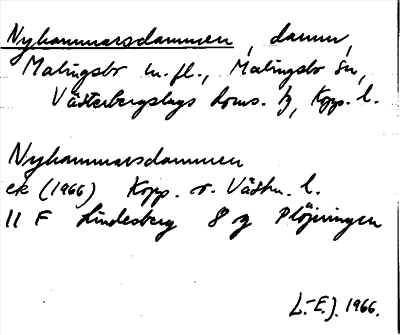 Nyhammarsdammen, damm,
Malingsbo m.fl., Malingsbo sn,
Västerbergslags doms. hg, Kopp. l.
Nyhammarsdammen
ek (1966) Kopp. o. Västm. l.
11 F Lindesberg 8 g Plöjningen
L.-E.J. 1966.